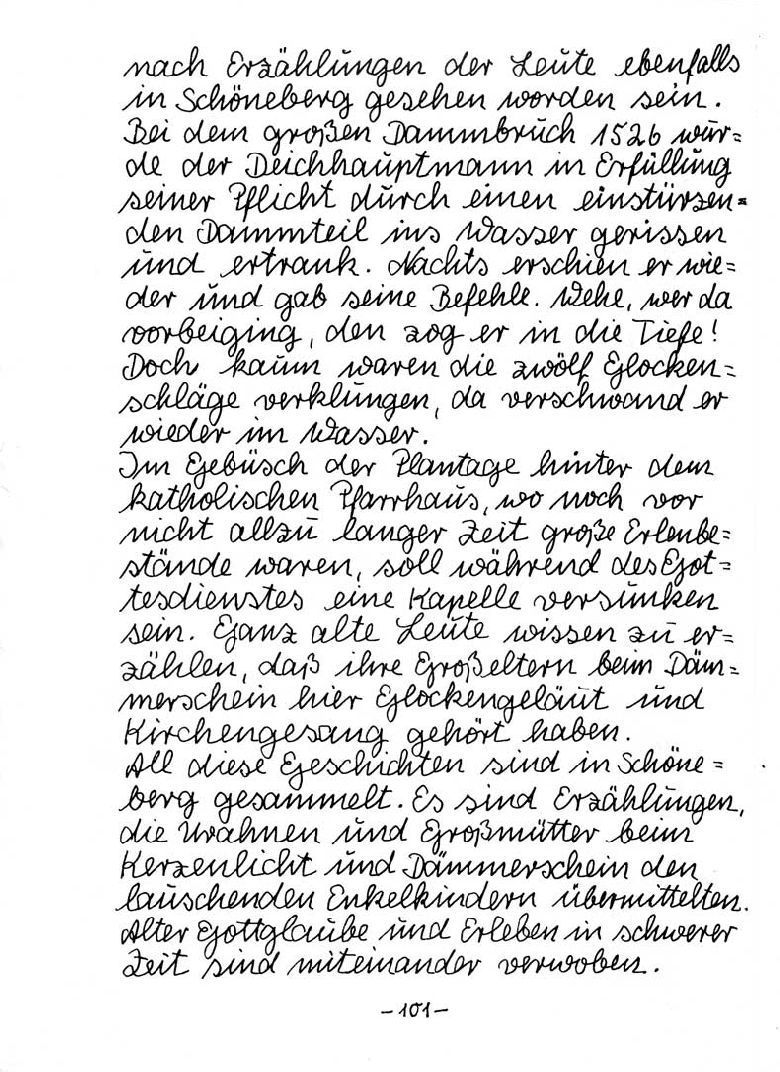 nach Erzählungen der Leute ebenfalls
in Schöneberg gesehen worden sein.
Bei dem großen Dammbruch 1526 wur=
de der Deichhauptmann in Erfüllung
seiner Pflicht durch einen einstürzen=
den Dammteil ins Wasser gerissen
und ertrank. Nachts erschien er wie=
der und gab seine Befehle. Wehe, wer da
vorbeiging, den zog er in die Tiefe!
Doch kaum waren die zwölf Glocken=
schläge verklungen, da verschwand er
wieder im Wasser.
Im Gebüsch der Plantage hinter dem
katholischen Pfarrhaus, wo noch vor
nicht allzu langer Zeit große Erlenbe=
stände waren, soll während des Got=
tesdienstes eine Kapelle versunken
sein. Ganz alte Leute wissen zu er=
zählen, daß ihre Großeltern beim Däm=
merschein hier Glockengeläut und
Kirchengesang gehört haben.
All diese Geschichten sind in Schöne=
berg gesammelt. Es sind Erzählungen,
die Urahnen und Großmütter beim
Kerzenlicht und Dämmerschein den
lauschenden Enkelkindern übermittelten.
Alter Gottglaube und Erleben in schwerer
Zeit sind miteinander verwoben.
-101-